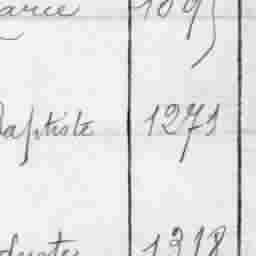 arie 109
aptiste 1271
1318